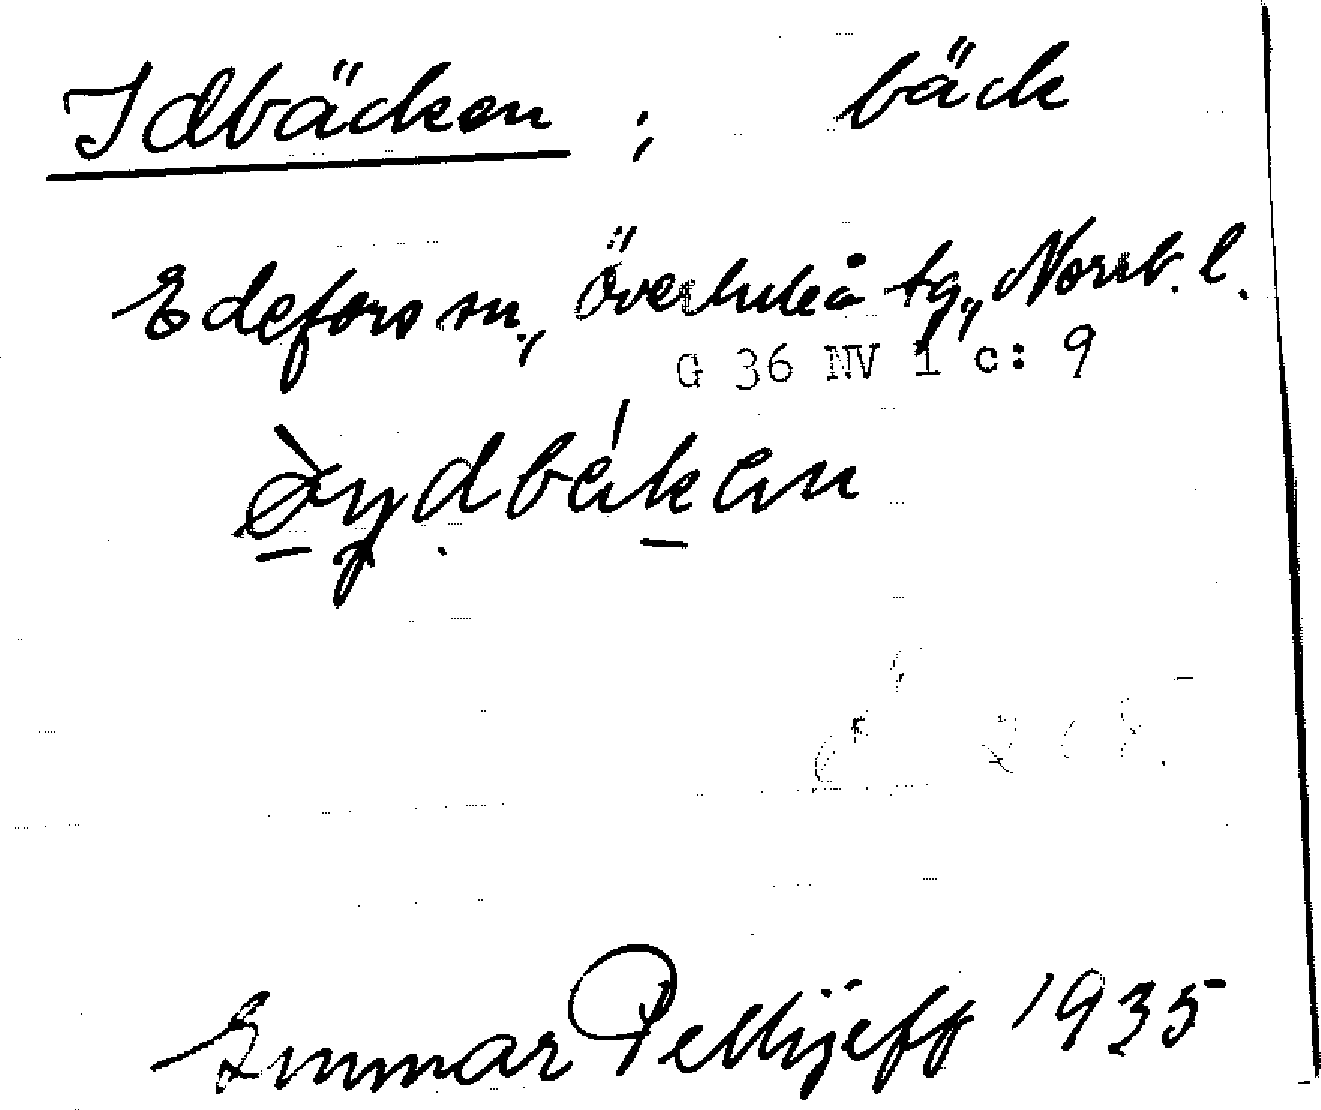 Idbäcken ; bäck
Edefors sn., Överluleå tg., Norrb. l.
G 36 NV 1 c: 9
Gunnar Pellijeff 1935